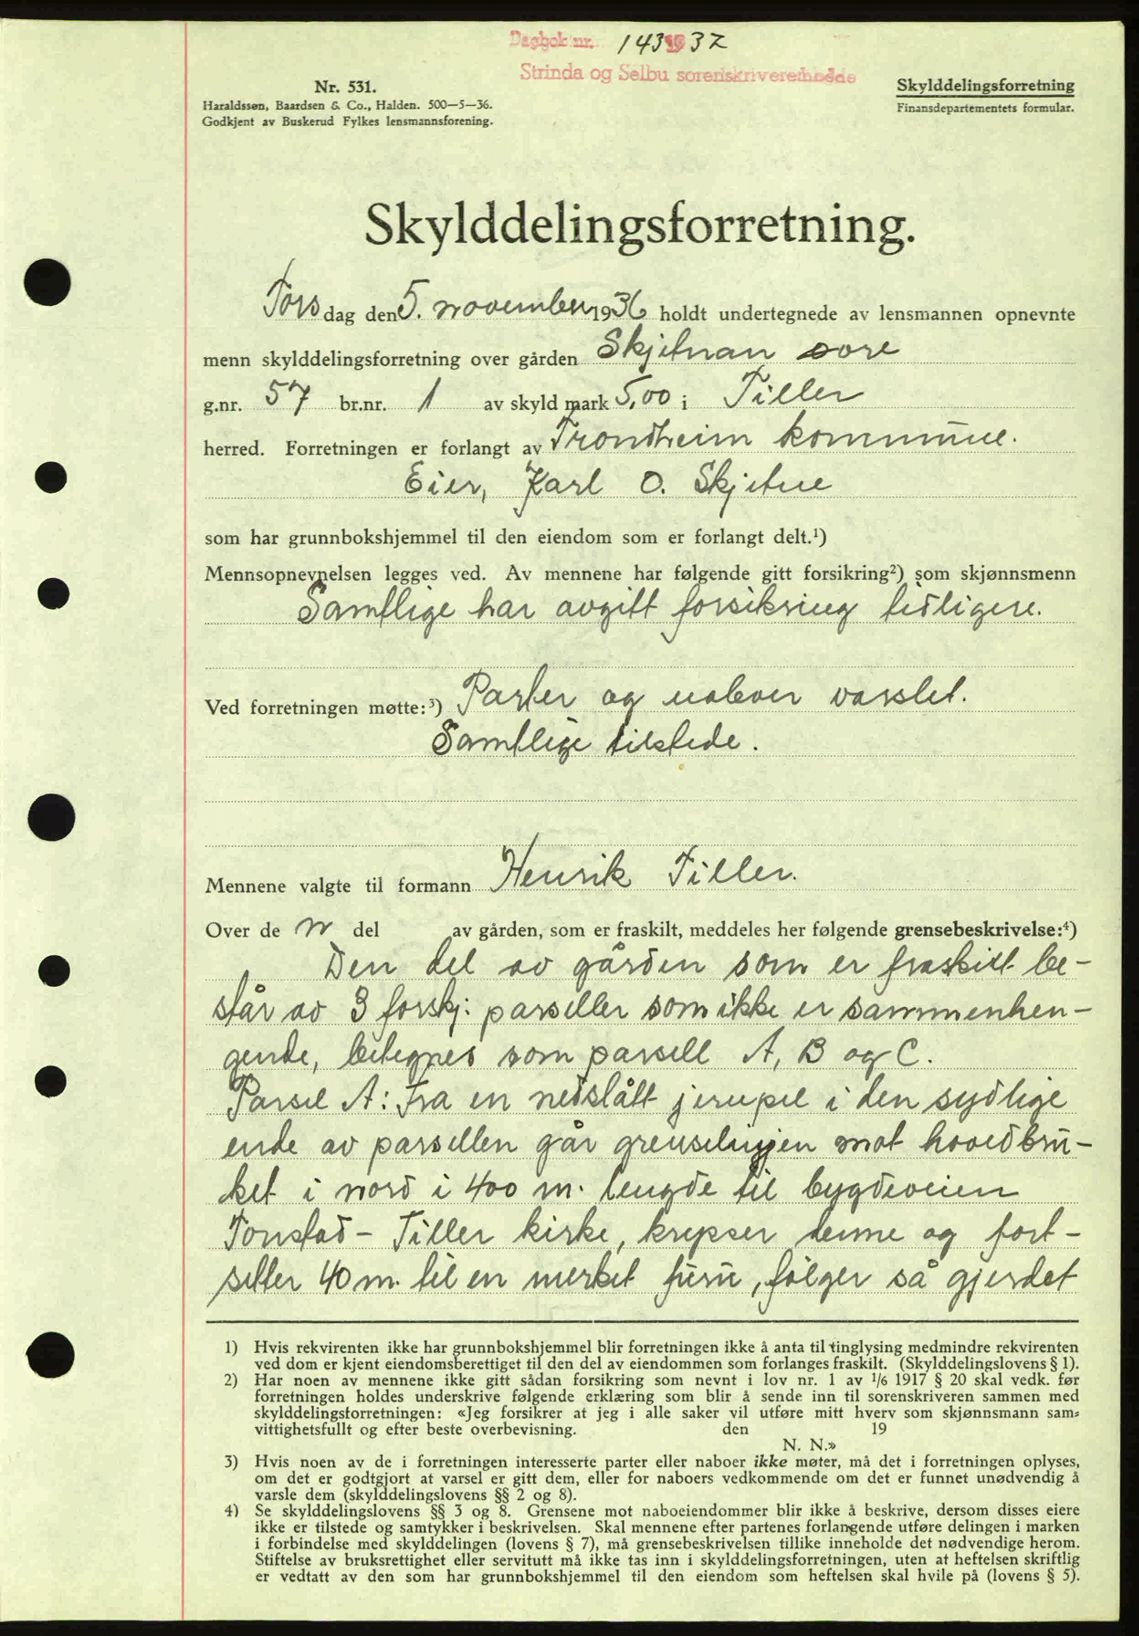 Dagbok nr. 143 1937
Strinda og Selbu sorenskriverembede
Nr. 531.
Haraldssøn, Baardsen & Co., Halden. 500—5—36.
Godkjent av Buskerud Fylkes lensmannsforening.
Skylddelingsforretning
Finansdepartementets formular.
Skylddelingsforretning.
Torsdag den 5. november 1936 holdt undertegnede av lensmannen opnevnte
menn skylddelingsforretning over gården Skjetnan øvre
g.nr. 57 br.nr. 1 av skyld mark 5,00 i Tiller
herred. Forretningen er forlangt av Trondheim kommune.
Eier, Karl O. Skjetne
som har grunnbokshjemmel til den eiendom som er forlangt delt.¹)
Mennsopnevnelsen legges ved. Av mennene har følgende gitt forsikring²) som skjønnsmenn
Samtlige har avgitt forsikring tidligere.
Ved forretningen møtte:³) Parter og naboer varslet.
Samtlige tilstede.
Mennene valgte til formann Henrik Tiller.
Over de n del av gården, som er fraskilt, meddeles her følgende grensebeskrivelse:⁴)
Den del av gården som er fraskilt be-
står av 3 forskj. parseller som ikke er sammenhen-
gende, betegnes som parsell A, B og C.
Parsel A: Fra en nedslått jernpel i den sydlige
ende av parsellen går grenselinjen mot hovedbru-
ket i nord i 400 m. lengde til bygdeveien
Tonstad - Tiller kirke, krysser denne og fort-
setter 40 m. til en merket furu, følger så gjerdet
1) Hvis rekvirenten ikke har grunnbokshjemmel blir forretningen ikke å anta til tinglysing medmindre rekvirenten
ved dom er kjent eiendomsberettiget til den del av eiendommen som forlanges fraskilt. (Skylddelingslovens § 1).
2) Har noen av mennene ikke gitt sådan forsikring som nevnt i lov nr. 1 av 1/6 1917 § 20 skal vedk. før
forretningen holdes underskrive følgende erklæring som blir å sende inn til sorenskriveren sammen med
skylddelingsforretningen: «Jeg forsikrer at jeg i alle saker vil utføre mitt hverv som skjønnsmann sam-
vittighetsfullt og efter beste overbevisning. den 19
N. N.»
3) Hvis noen av de i forretningen interesserte parter eller naboer ikke møter, må det i forretningen oplyses,
om det er godtgjort at varsel er gitt dem, eller for naboers vedkommende om det er funnet unødvendig å
varsle dem (skylddelingslovens §§ 2 og 8).
4) Se skylddelingslovens §§ 3 og 8. Grensene mot naboeiendommer blir ikke å beskrive, dersom disses eiere
ikke er tilstede og samtykker i beskrivelsen. Skal mennene efter partenes forlangende utføre delingen i marken
i forbindelse med skylddelingen (lovens § 7), må grensebeskrivelsen tillike inneholde det nødvendige herom.
Stiftelse av bruksrettighet eller servitutt må ikke tas inn i skylddelingsforretningen, uten at heftelsen skriftlig
er vedtatt av den som har grunnbokshjemmel til den eiendom som heftelsen skal hvile på (lovens § 5).